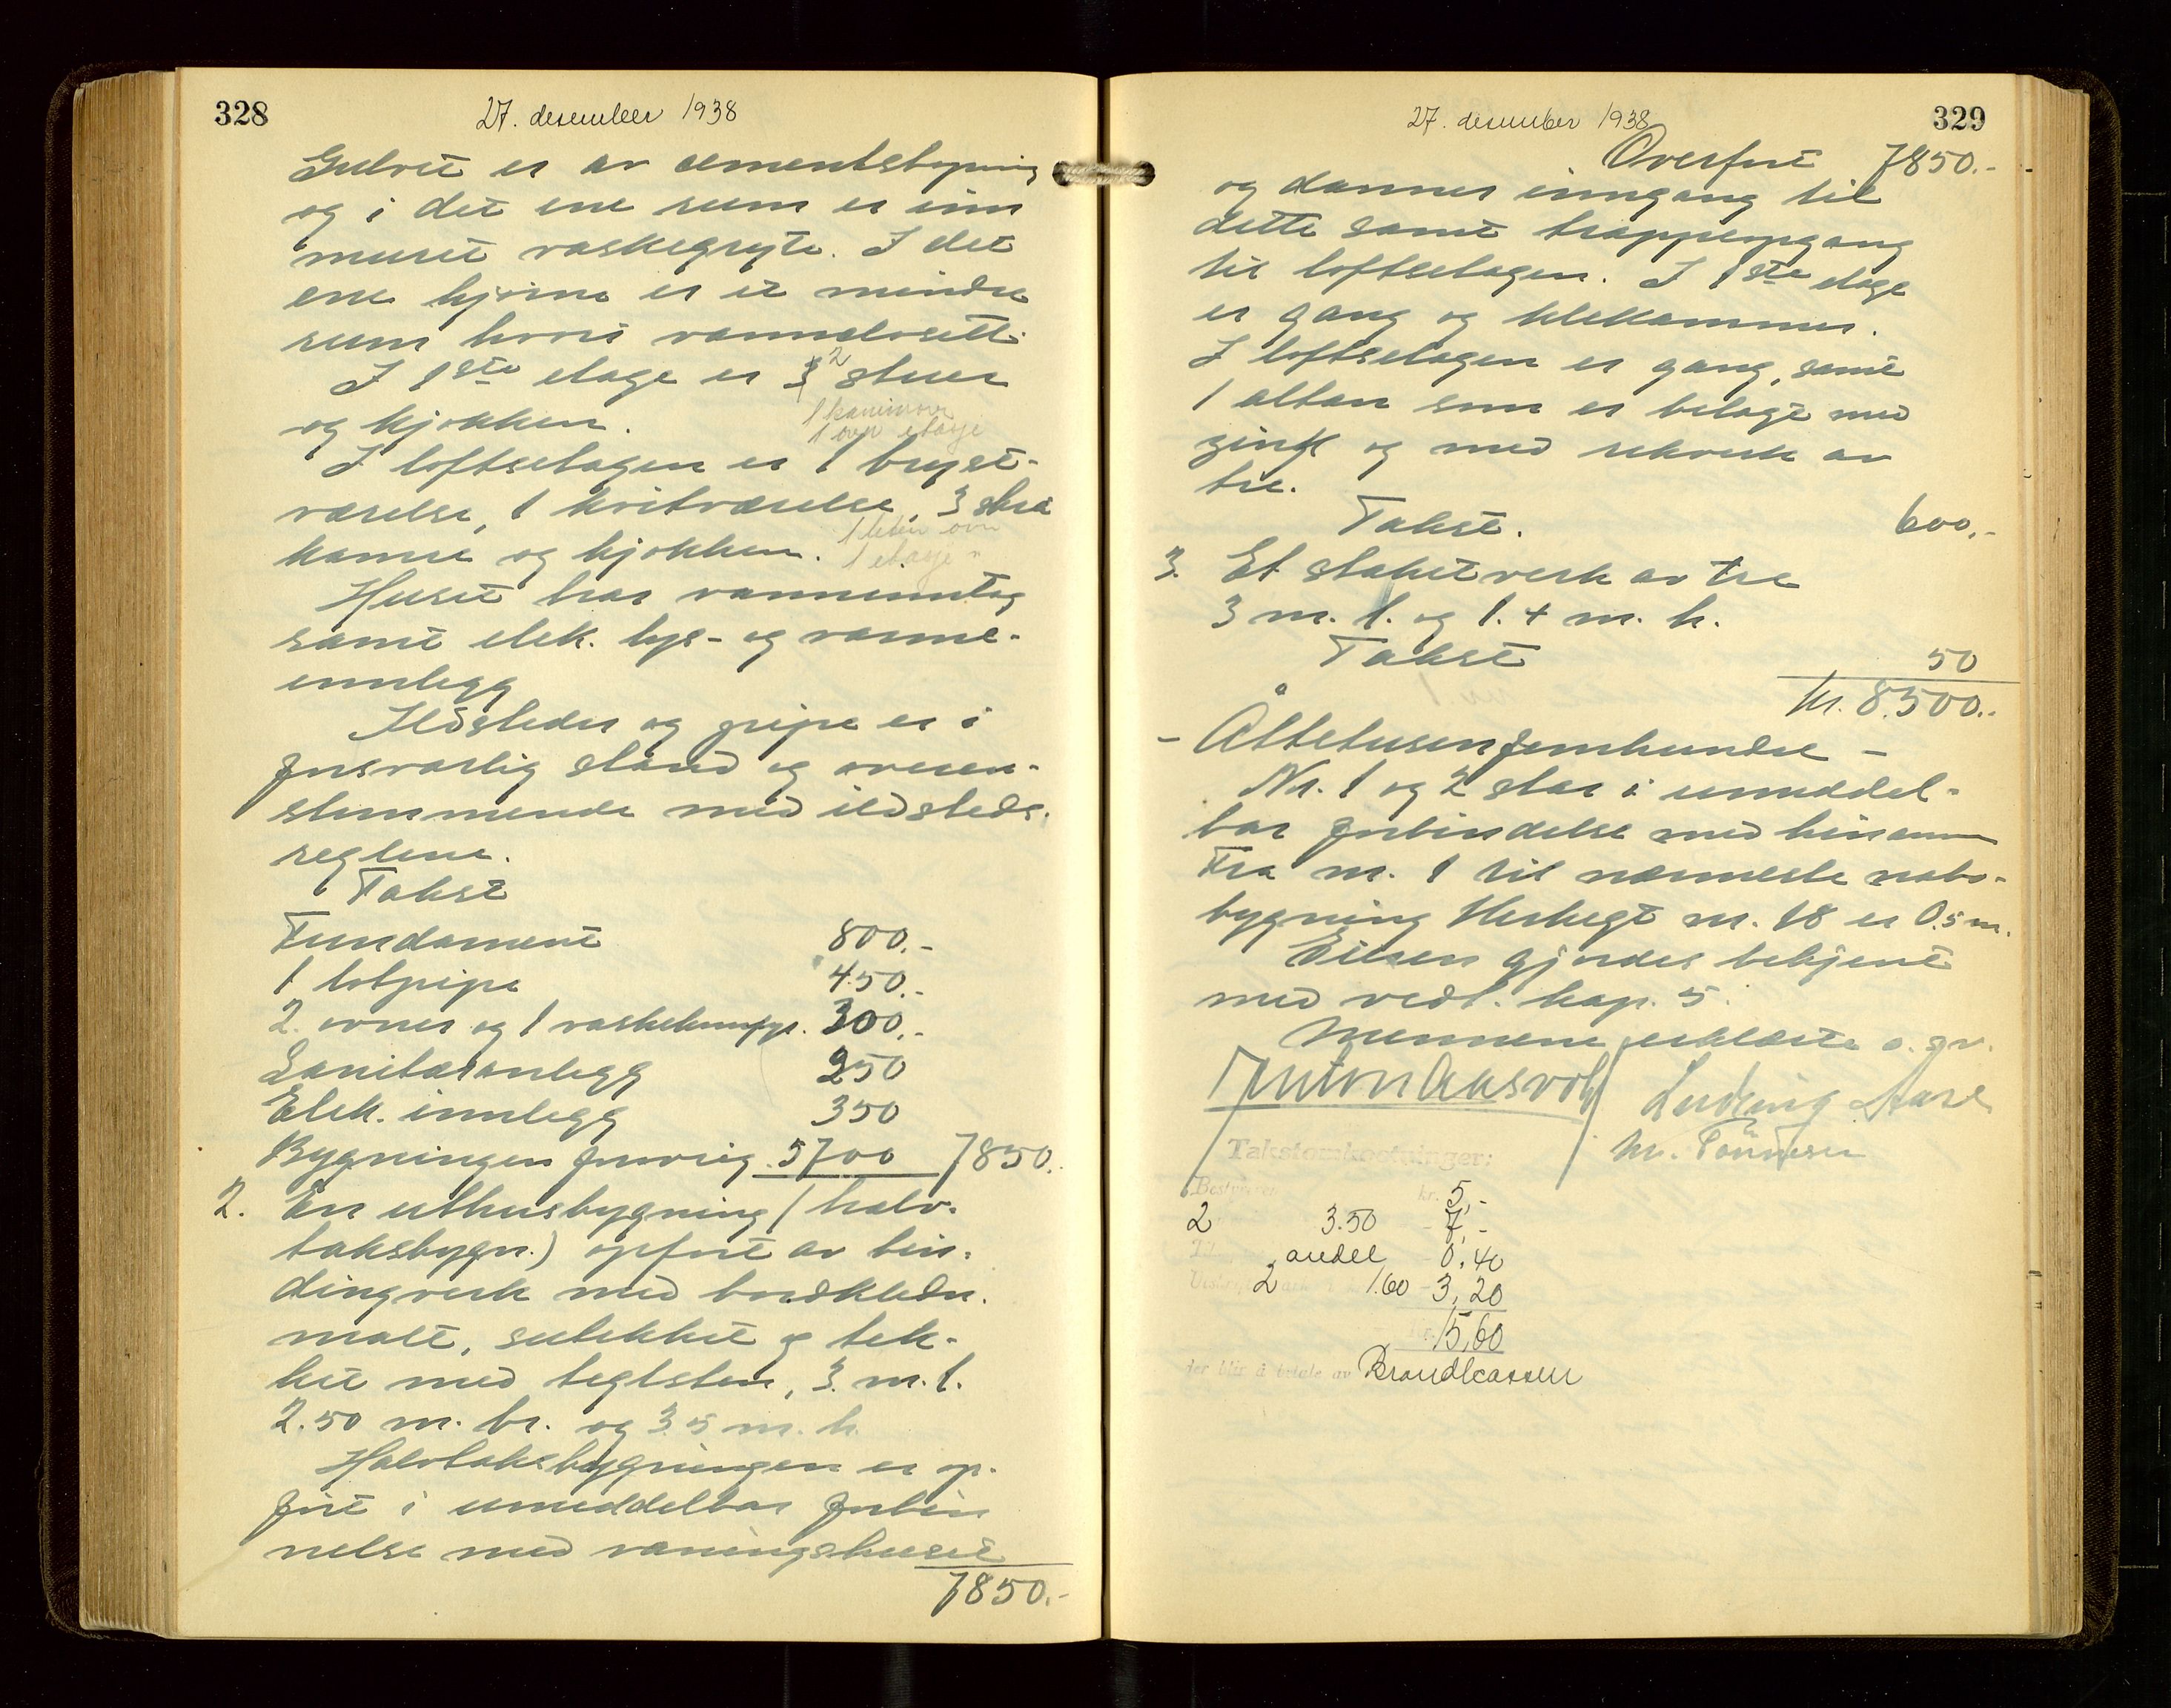 328
27. desember 1938
Gulvet er av cementstøpning
og i det ene rum er inn
muret vaskegryte. I det
ene hjørne er et mindre
rum hvori vannklosett.
I 1ste etage er 2 stuer
og kjøkken.
1 kaminovn
1 ovn etasje
I loftsetagen er 1 bryst-
værelse, 1 kvitværelse, 3 skrå
kamre og kjøkken.
1 liten ovn
1 etasje "
Huset har vanninntag
samt elek. lys- og varme-
innlegg
Ildsteder og pipe er i
forsvarlig stand og overen-
stemmende med ildsteds-
reglene.
Takst
Fundament 800.-
1 løtpipe 450.-
2 ovner og 1 vaskekumfyr. 300.-
Sanitæranlegg 250
Elek. innlegg 350
Bygningen forøvrig 5700 7850.
2. En uthusbygning (halv-
taksbygn.) opført av bin-
dingverk med bordkledn.
malt, sutekket og tek-
ket med teglsten, 3. m. l.
2.50 m. br. og 3.5 m. h.
Halvtaksbygningen er op-
ført i umiddelbar forbin
nelse med våningshuset
7850.-
329
27. desember 1938
Overført 7850.-
og danner inngang til
dette samt trappeopgang
til loftsetagen. I 1ste etage
er gang og klekammer.
I loftsetagen er gang, samt
1 altan som er belagt med
zink og med rekverk av
tre.
Takst. 600.-
3. Et stakitverk av tre
3 m. l. og 1.4 m. h.
Takst 50
kr. 8.500.-
- Åttetusenfemhundre -
Nr. 1 og 2 står i umiddel-
bar forbindelse med hinannen
Fra nr. 1 til nærmeste nabo-
bygning nr. 18 er 0.5 m.
Eieren gjordes bekjent
med vedt. kap. 5.
Mennene erklærte o. sv.
Anton Aasvold
Ludvig Aase
M. Tønnesen
Takstomkostninger:
Bestyreren kr. 5,-
2 3.50 - 7,-
andel - 0,40
2 1.60 - 3,20
kr. 15,60
der blir å betale av Brandkassen